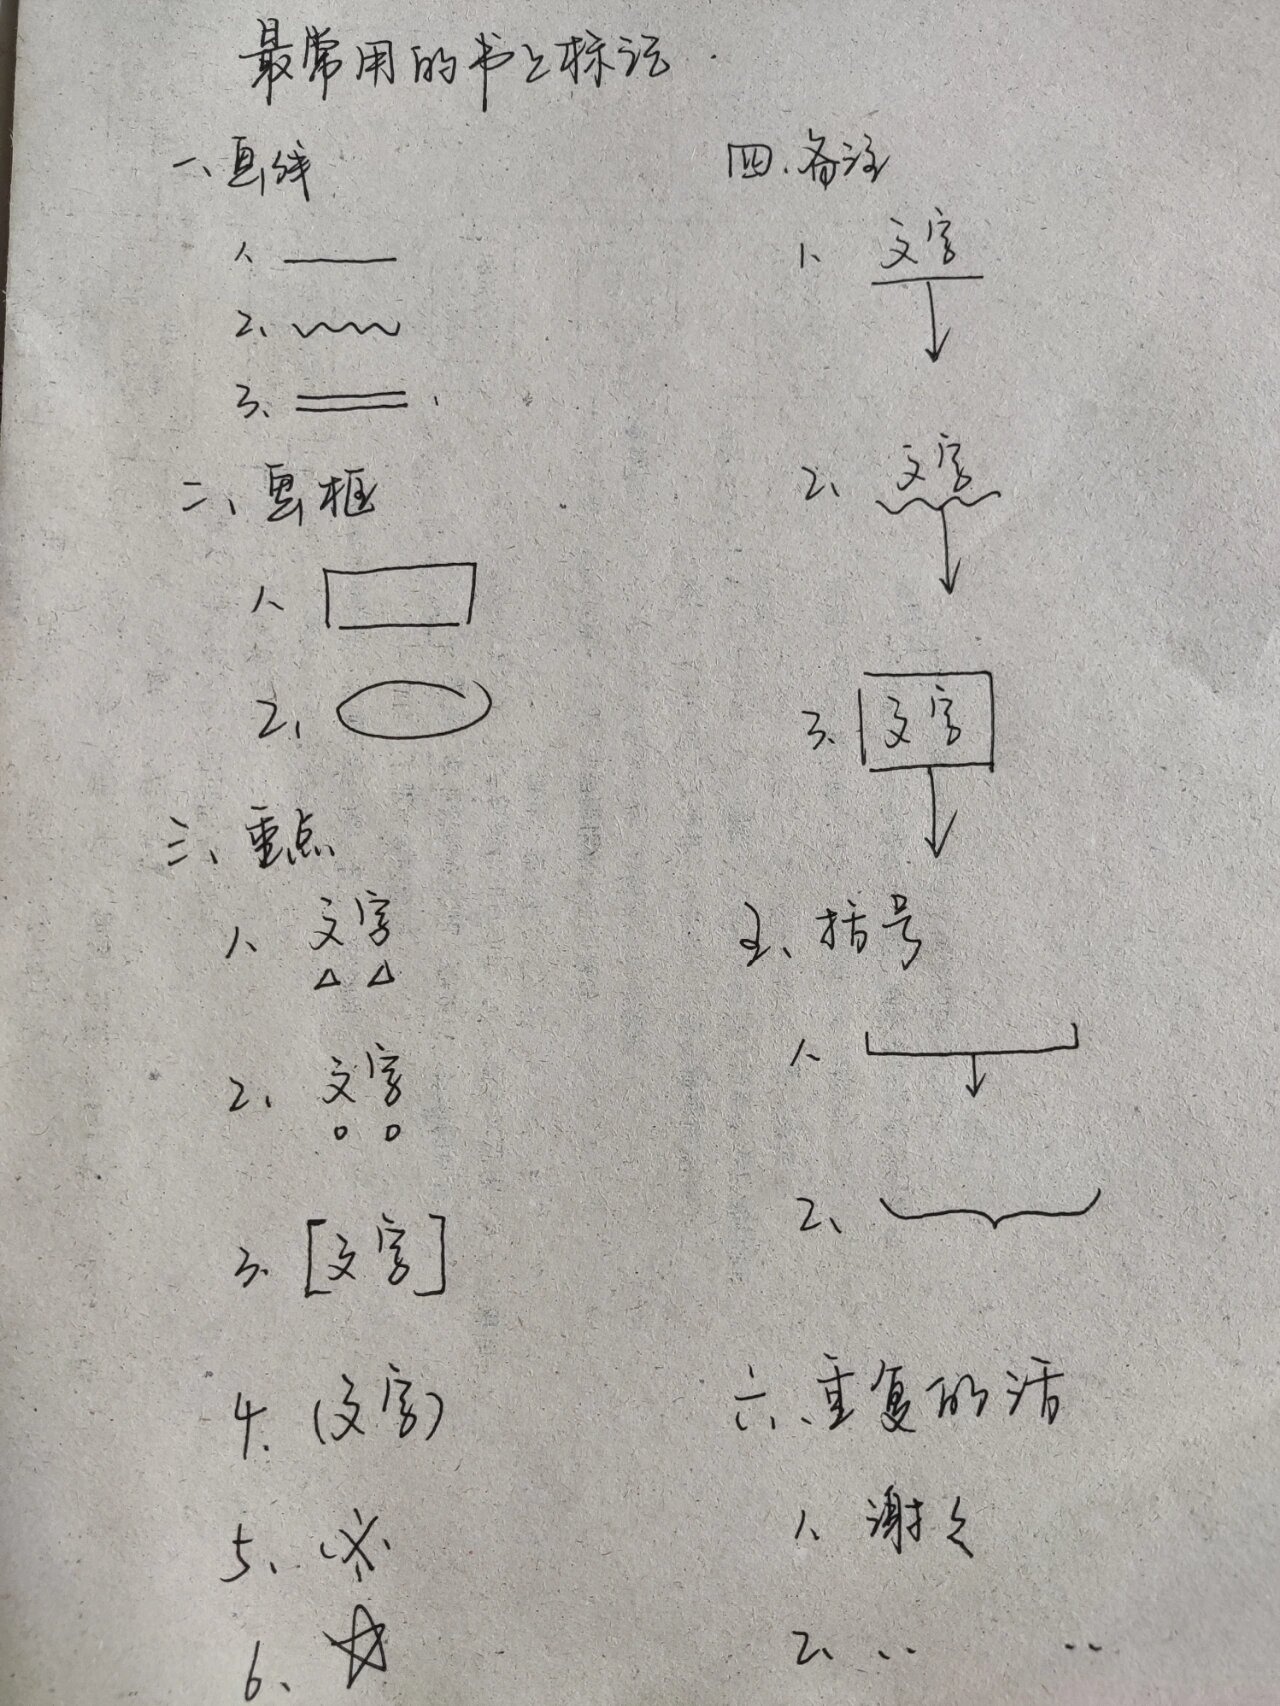 最常用的书上标记
一、画线
1、
2、
3、
二、画框
1、
2、
三、重点
1、文字
2、文字
3、[文字]
4、(文字)
5、
6、
四、备注
1、文字
2、文字
3、文字
五、括号
1、
2、
六、重复的话
1、谢々
2、